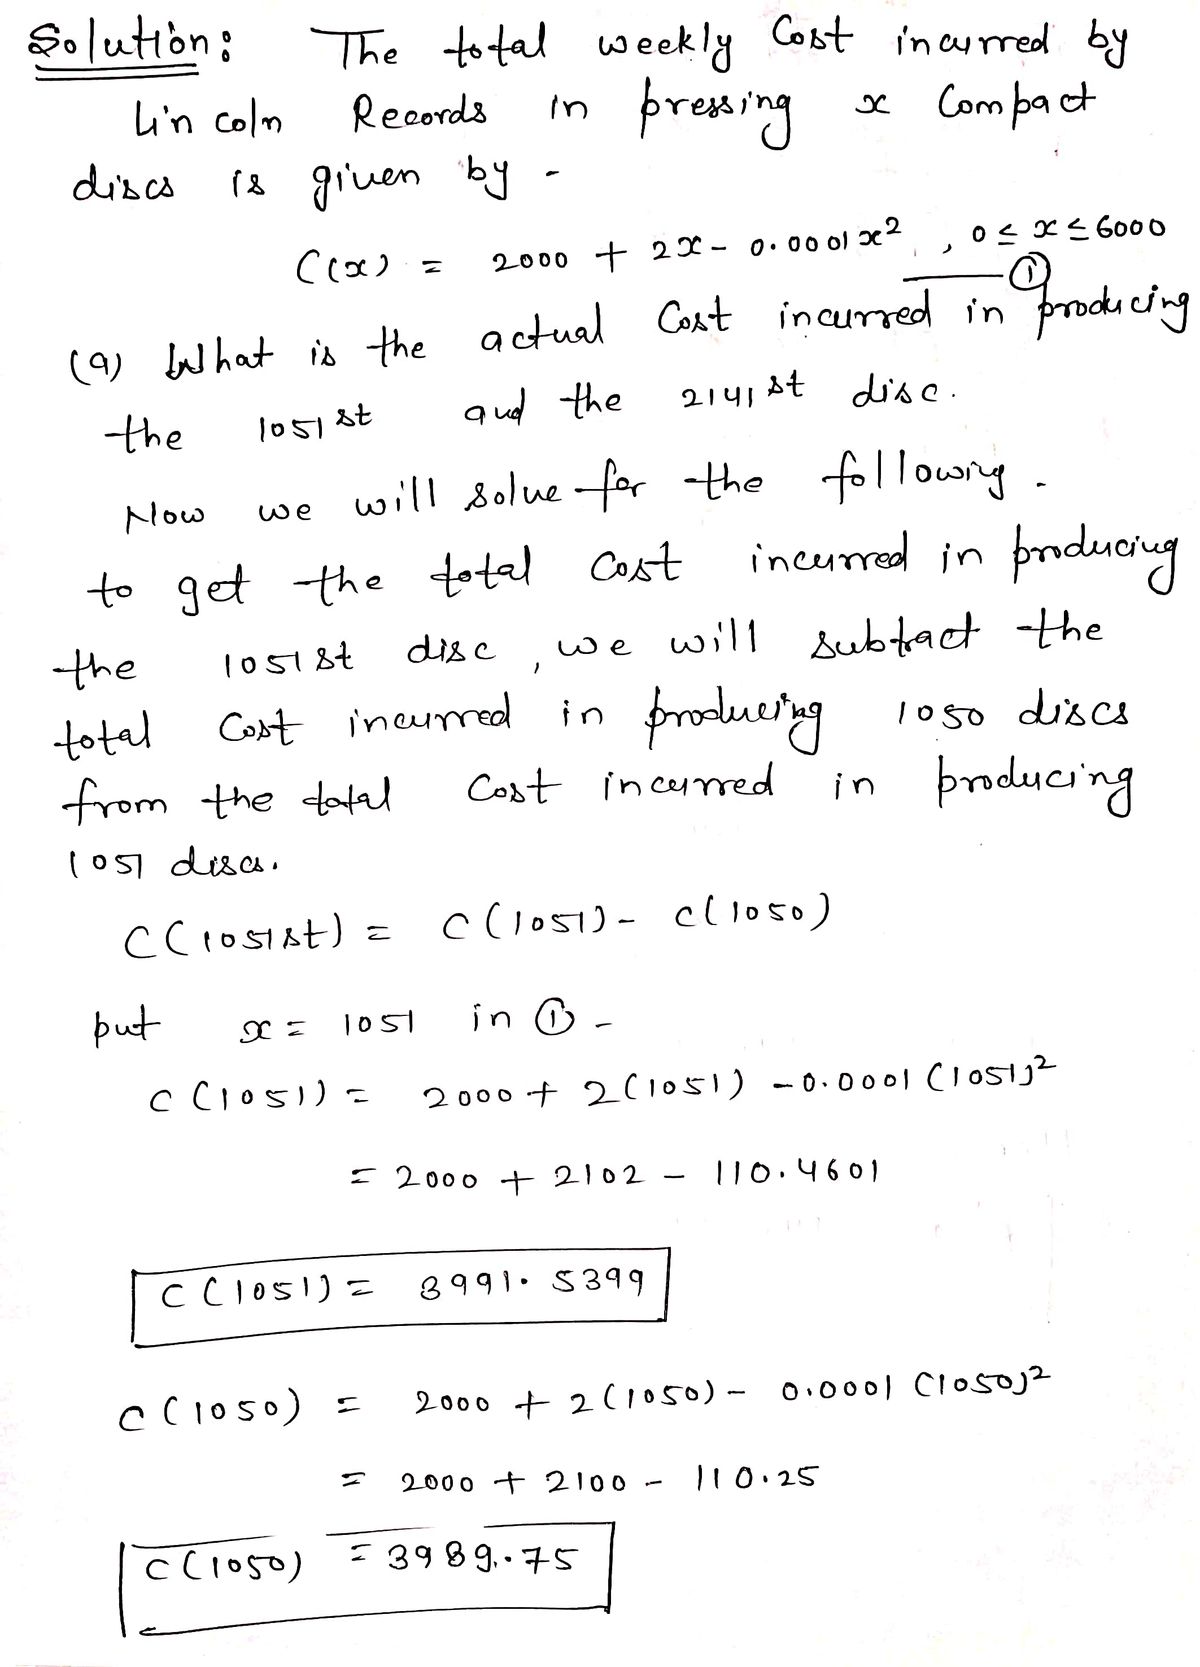 Solution: The total weekly Cost incurred by
Lincoln Records in pressing x Compact
discs is given by -
C(x) = 2000 + 2x - 0.0001x², 0 ≤ x ≤ 6000
①
(a) What is the actual Cost incurred in producing
the 1051st and the 2141st disc.
Now we will solve for the following.
to get the total cost incurred in producing
the 1051st disc, we will subtract the
total Cost incurred in producing 1050 discs
from the total Cost incurred in producing
1051 discs.
C(1051st) = C(1051) - C(1050)
put x = 1051 in ① -
C(1051) = 2000 + 2(1051) - 0.0001(1051)²
= 2000 + 2102 - 110.4601
C(1051) = 3991.5399
C(1050) = 2000 + 2(1050) - 0.0001(1050)²
= 2000 + 2100 - 110.25
C(1050) = 3989.75